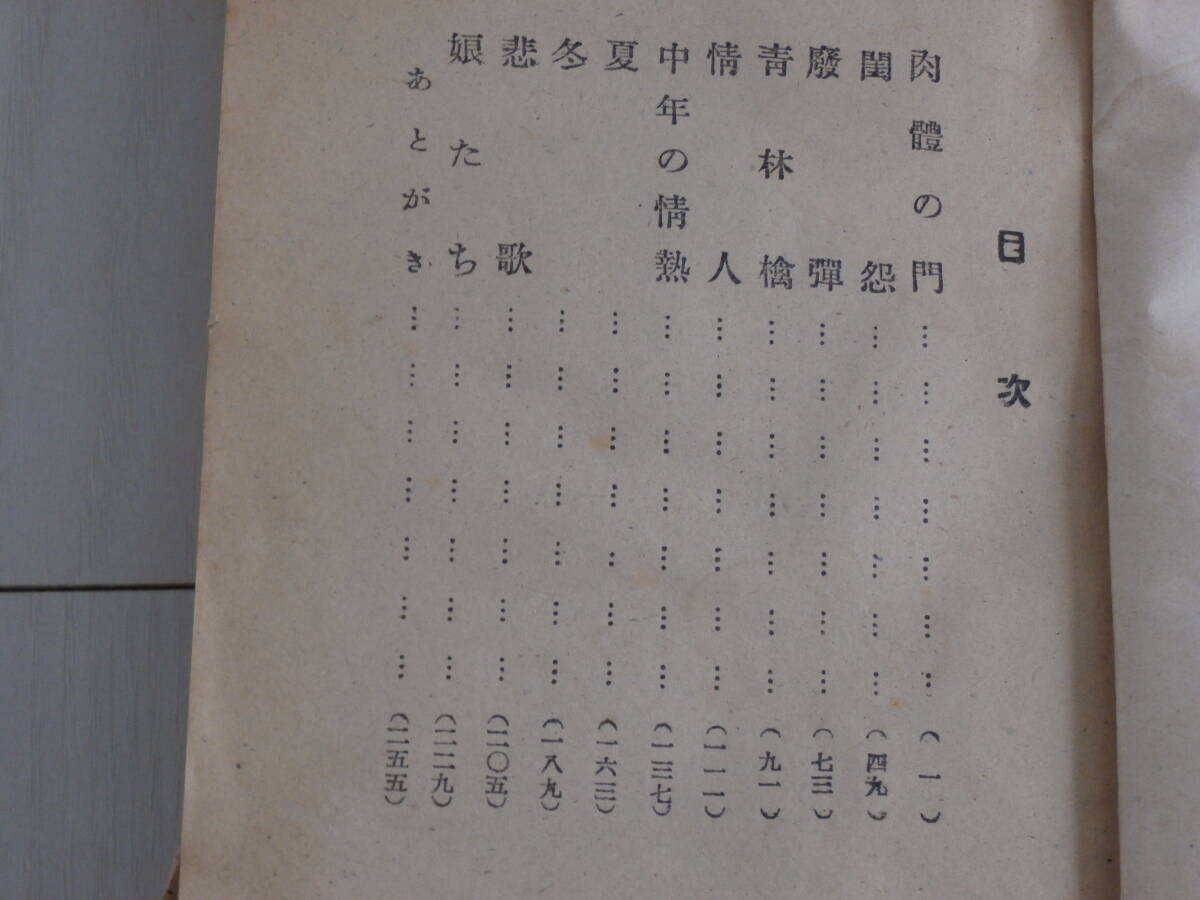 目次
肉體の門………………（一）
閨怨………………（四九）
廢彈………………（七三）
靑林檎………………（九一）
情人………………（一一一）
中年の情熱………………（一三七）
夏………………（一六三）
冬………………（一八九）
悲歌………………（二〇五）
娘たち………………（二二九）
あとがき………………（二五五）